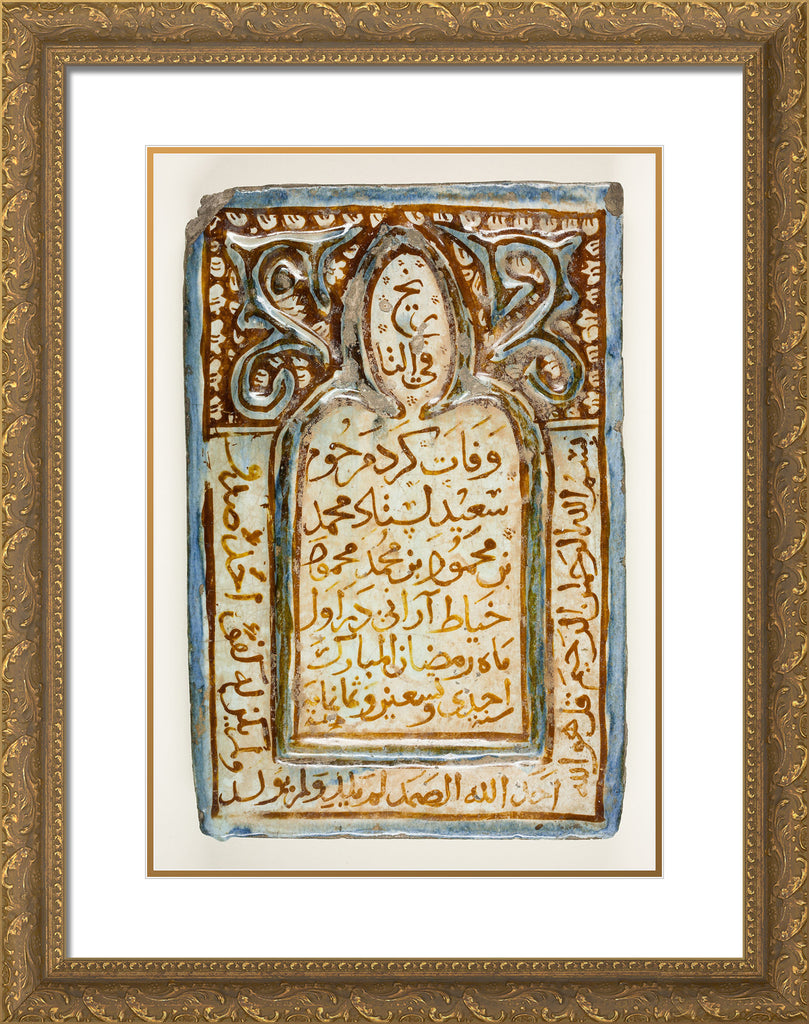 تاریخ
فی التا
وفات کرد مرحوم
سعید استاد محمد
بن محمود بن محمد محمود
خیاط آرانی در اول
ماه رمضان المبارک
احدی و تسعین و ثمانمایه
بسم الله الرحمن الرحیم قل هو الله
احد الله الصمد لم یلد و لم یولد
ولم یکن له کفوا احد